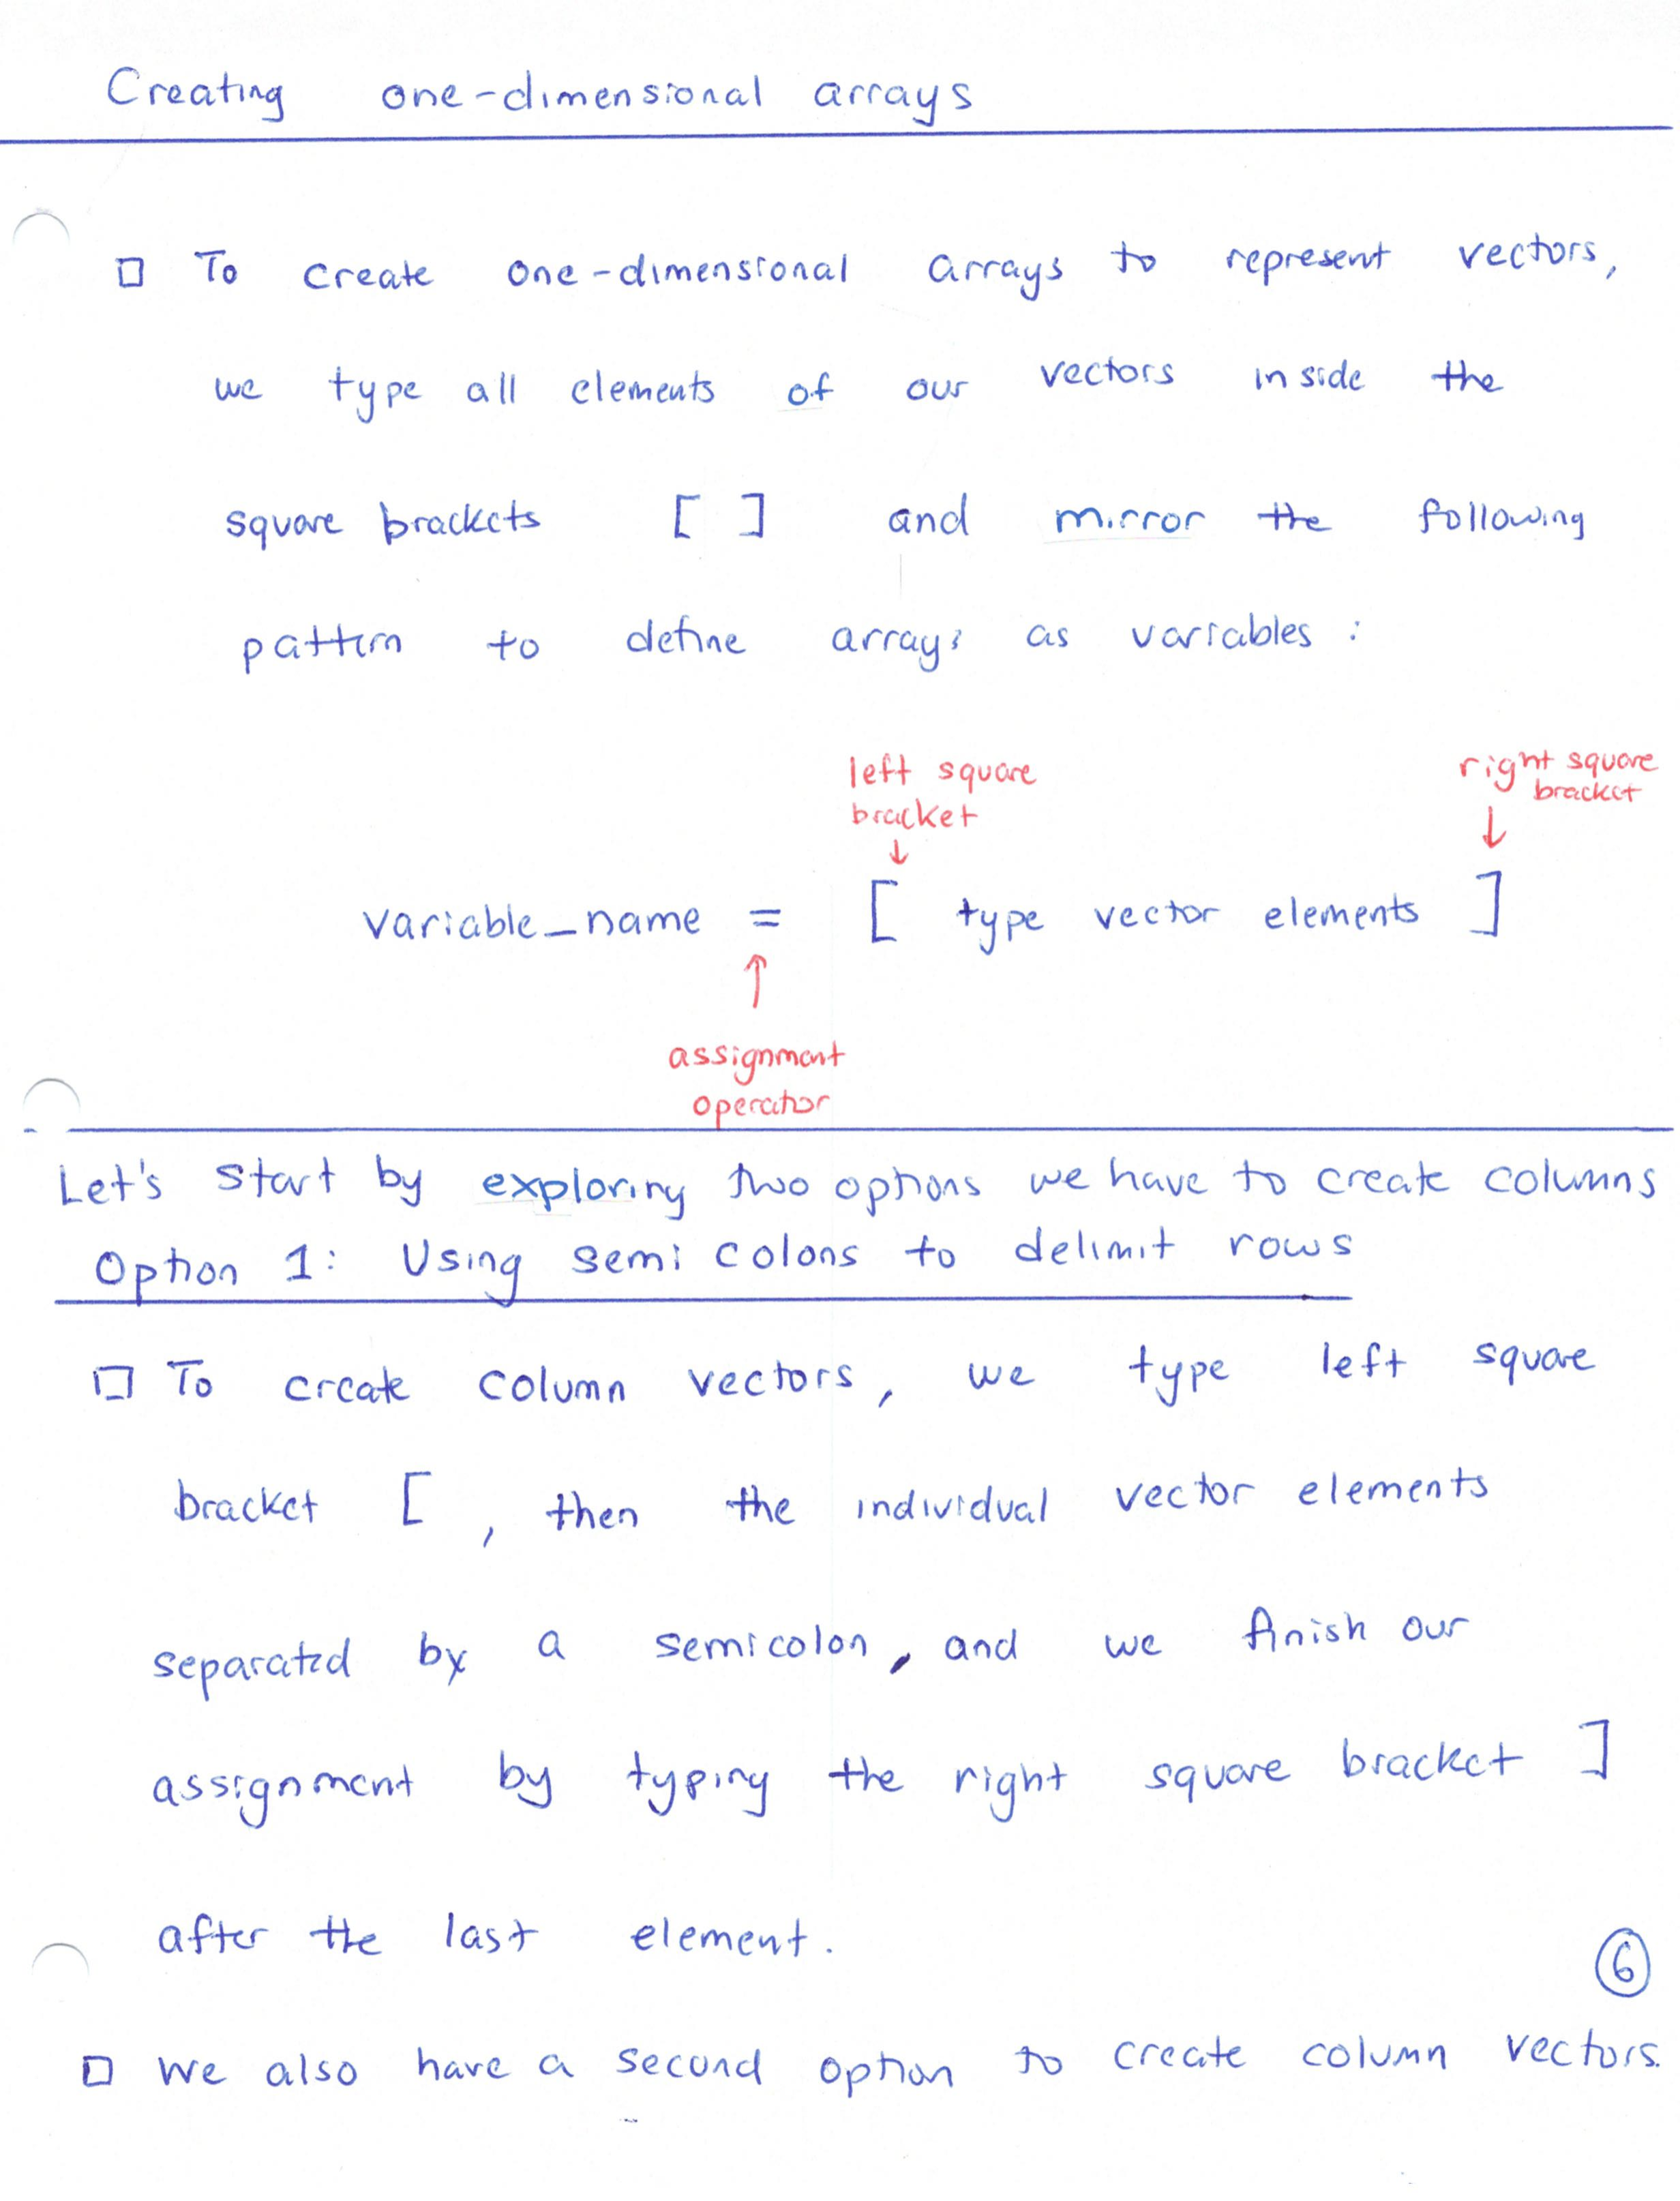 Creating one-dimensional arrays
□ To create one-dimensional arrays to represent vectors,
we type all elements of our vectors inside the
square brackets [ ] and mirror the following
pattern to define arrays as variables:
left square
bracket
↓
right square
bracket
↓
variable_name = [ type vector elements ]
↑
assignment
operator
Let's start by exploring two options we have to create columns
Option 1: Using semicolons to delimit rows
□ To create column vectors, we type left square
bracket [ , then the individual vector elements
separated by a semicolon, and we finish our
assignment by typing the right square bracket ]
after the last element.
6
□ We also have a second option to create column vectors.